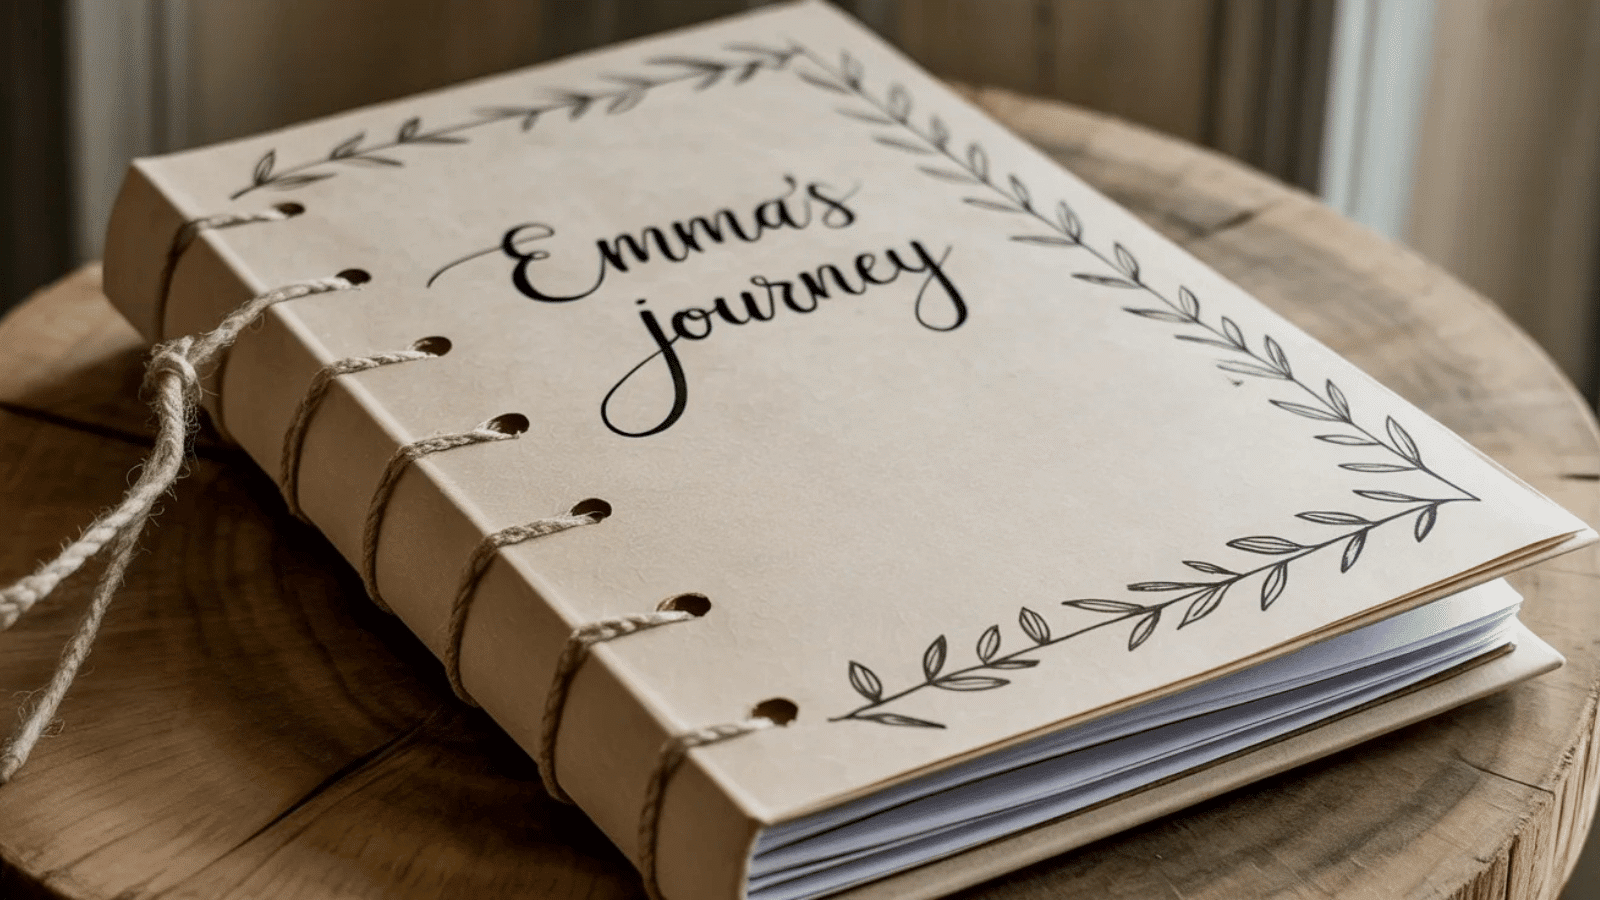 Emma's
journey